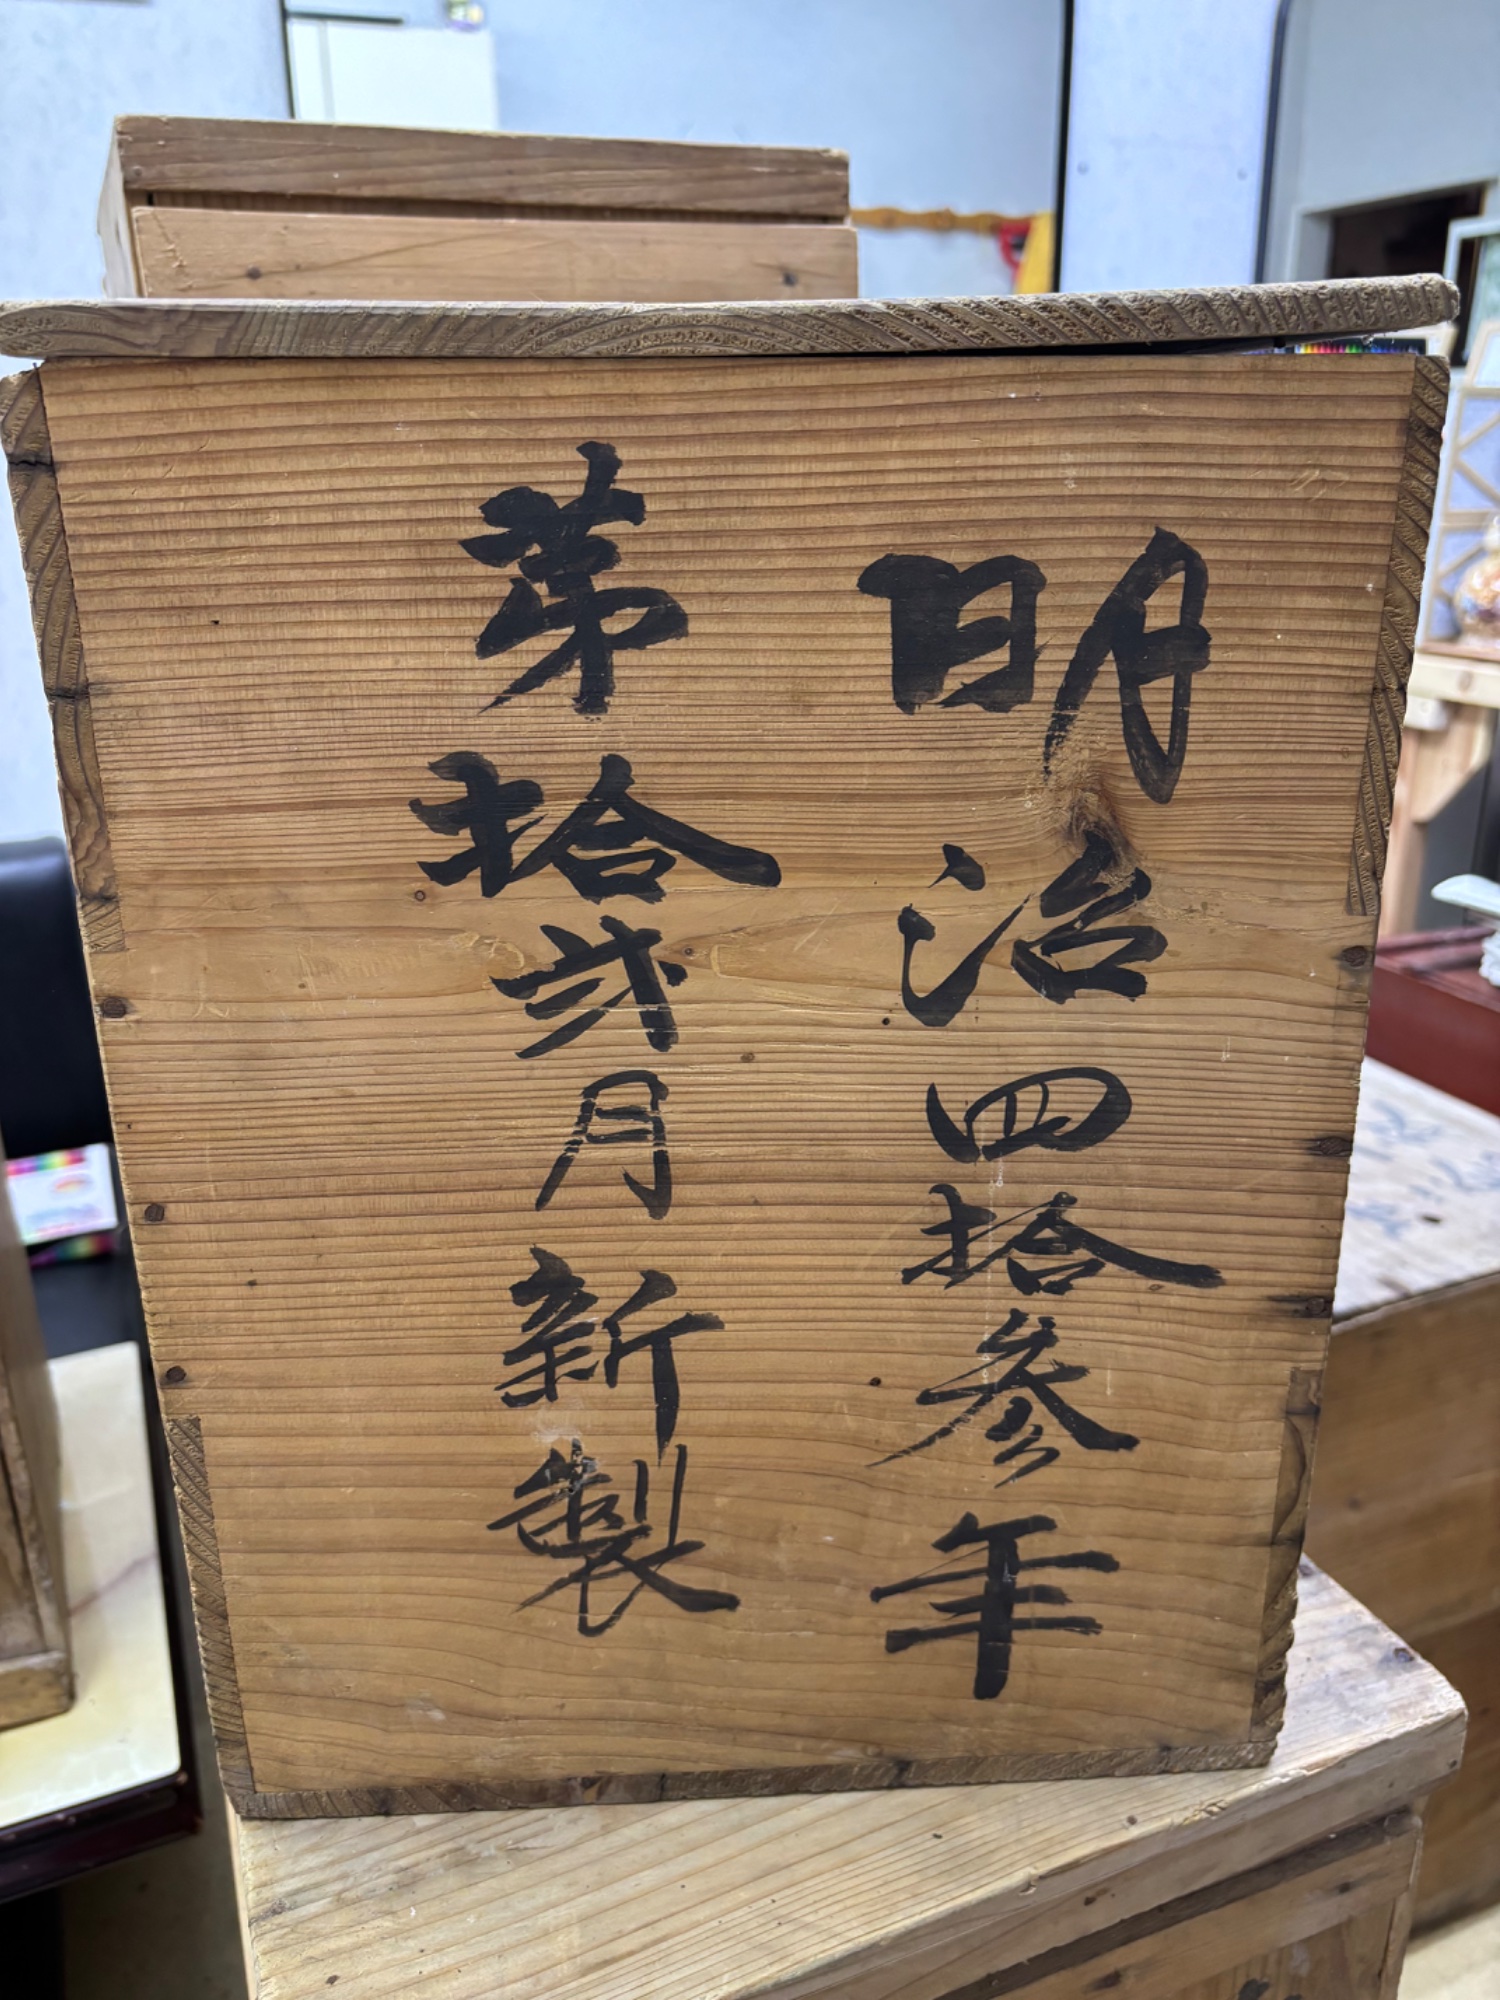 明治四拾参年
第拾弐月新製